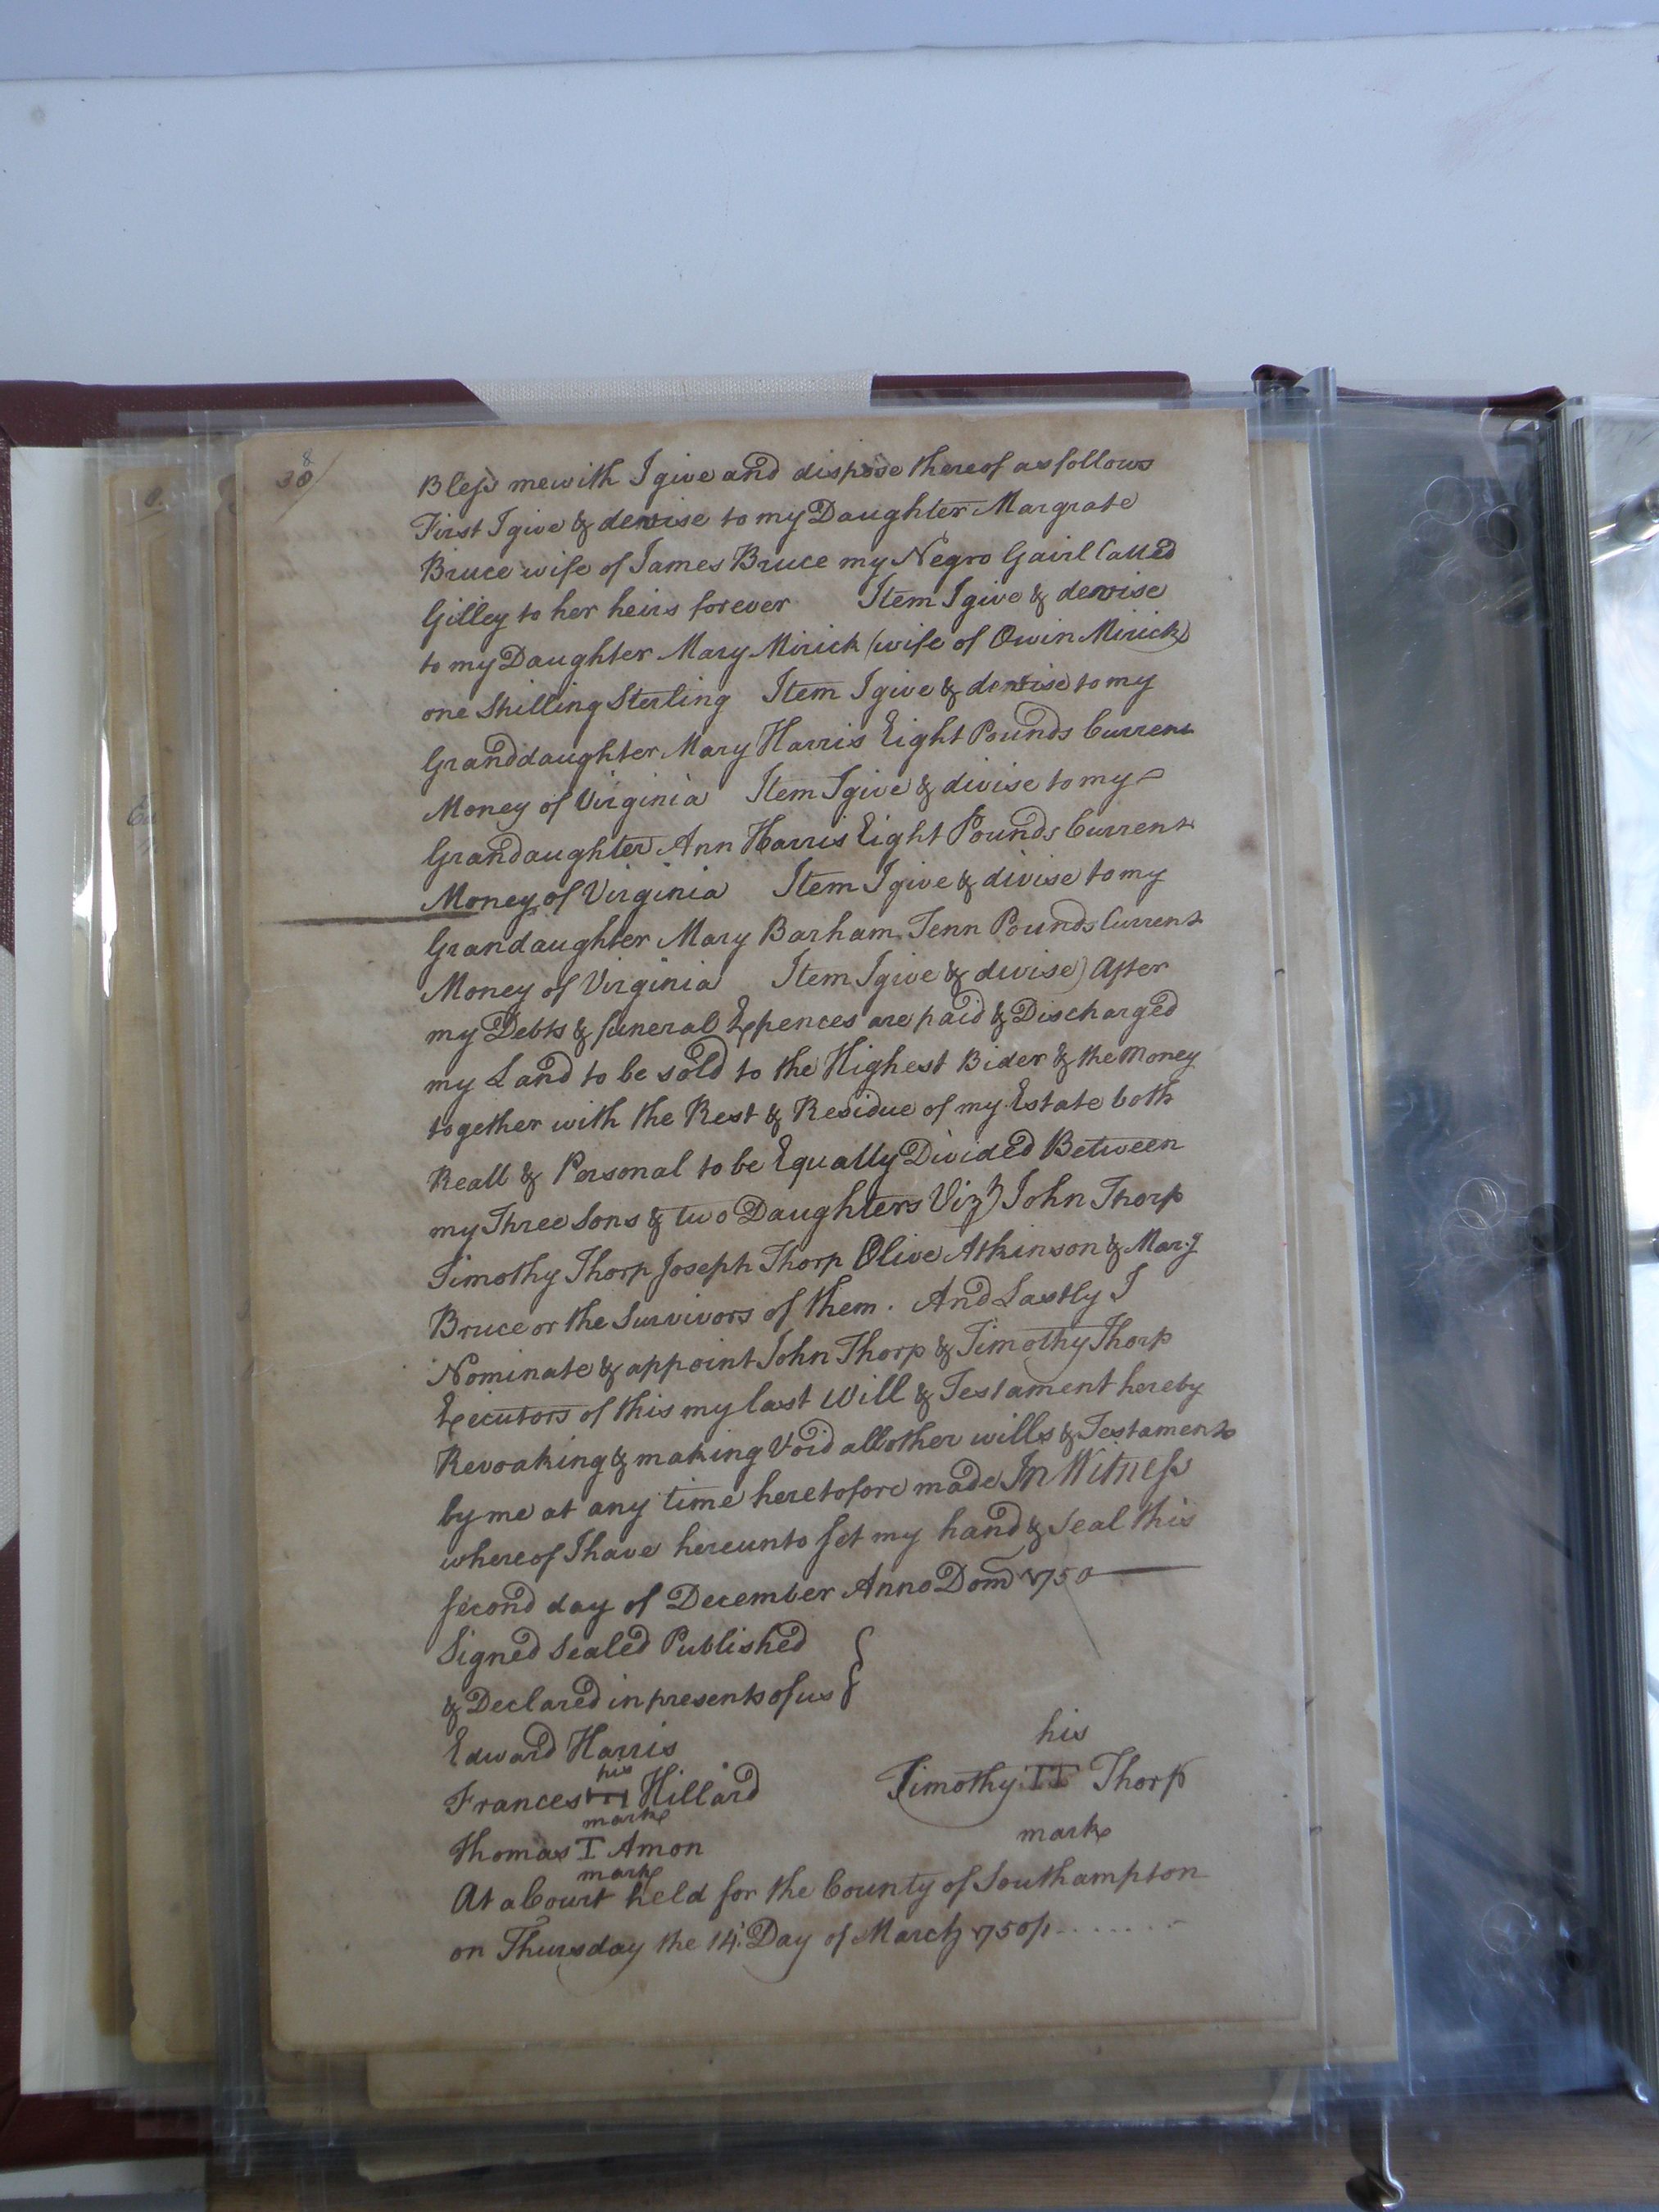 38
Bless me with I give and dispose thereof as follows
First I give & devise to my Daughter Margrate
Bruce wife of James Bruce my Negro Gairl Called
Gilley to her heirs forever Item I give & devise
to my Daughter Mary Mirick (wife of Owin Mirick)
one Shilling Sterling Item I give & devise to my
Granddaughter Mary Harris Eight Pounds Current
Money of Virginia Item I give & divise to my
Grandaughter Ann Harris Eight Pounds Current
Money of Virginia Item I give & divise to my
Grandaughter Mary Barham Tenn Pounds Current
Money of Virginia Item I give & divise) After
my Debts & funeral Expences are paid & Discharged
my Land to be sold to the Highest Bider & the Money
together with the Rest & Residue of my Estate both
Reall & Personal to be Equally Divided Between
my Three Sons & two Daughters Vizt) John Thorp
Timothy Thorp Joseph Thorp Olive Atkinson & Marg
Bruce or the Survivors of them. And Lastly I
Nominate & appoint John Thorp & Timothy Thorp
Executors of this my last Will & Testament hereby
Revoaking & making Void all other wills & Testaments
by me at any time heretofore made In Witness
whereof I have hereunto set my hand & Seal this
second day of December Anno Dom 1750
Signed Sealed Published
& Declared in presents of us
Edward Harris
his
Frances Hillard
mark
Thomas I Amon
mark
his
Timothy TT Thorp
mark
At a Court held for the County of Southampton
on Thursday the 14. Day of March 1750/1